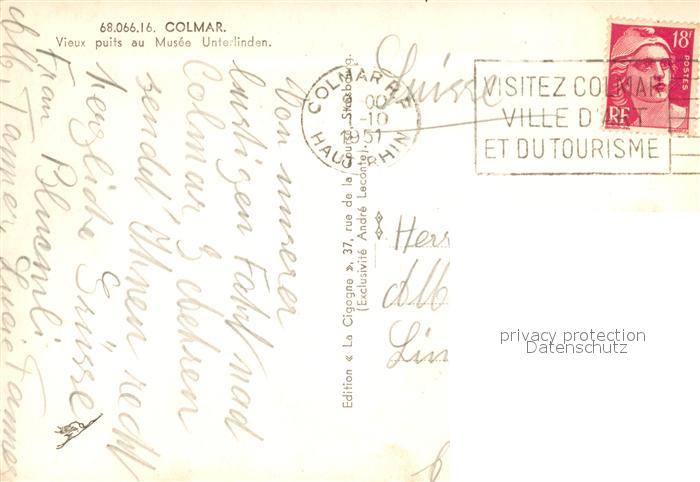 68.066.16. COLMAR.
Vieux puits au Musée Unterlinden.
Von unserer
lustigen Fahrt nach
Colmar
sendet Ihnen recht
herzliche Grüsse
Frau Bluemli
Alb. Tanner, Lucie Tanner
Edition « La Cigogne », 37, rue de la Course, Strasbourg.
(Exclusivité André Leconte).
Suisse
COLMAR R.P.
00
1-10
1951
HAUT-RHIN
VISITEZ COLMAR
VILLE D'ART
ET DU TOURISME
18F
POSTES
RF
Herr
Alb
Lin
privacy protection
Datenschutz